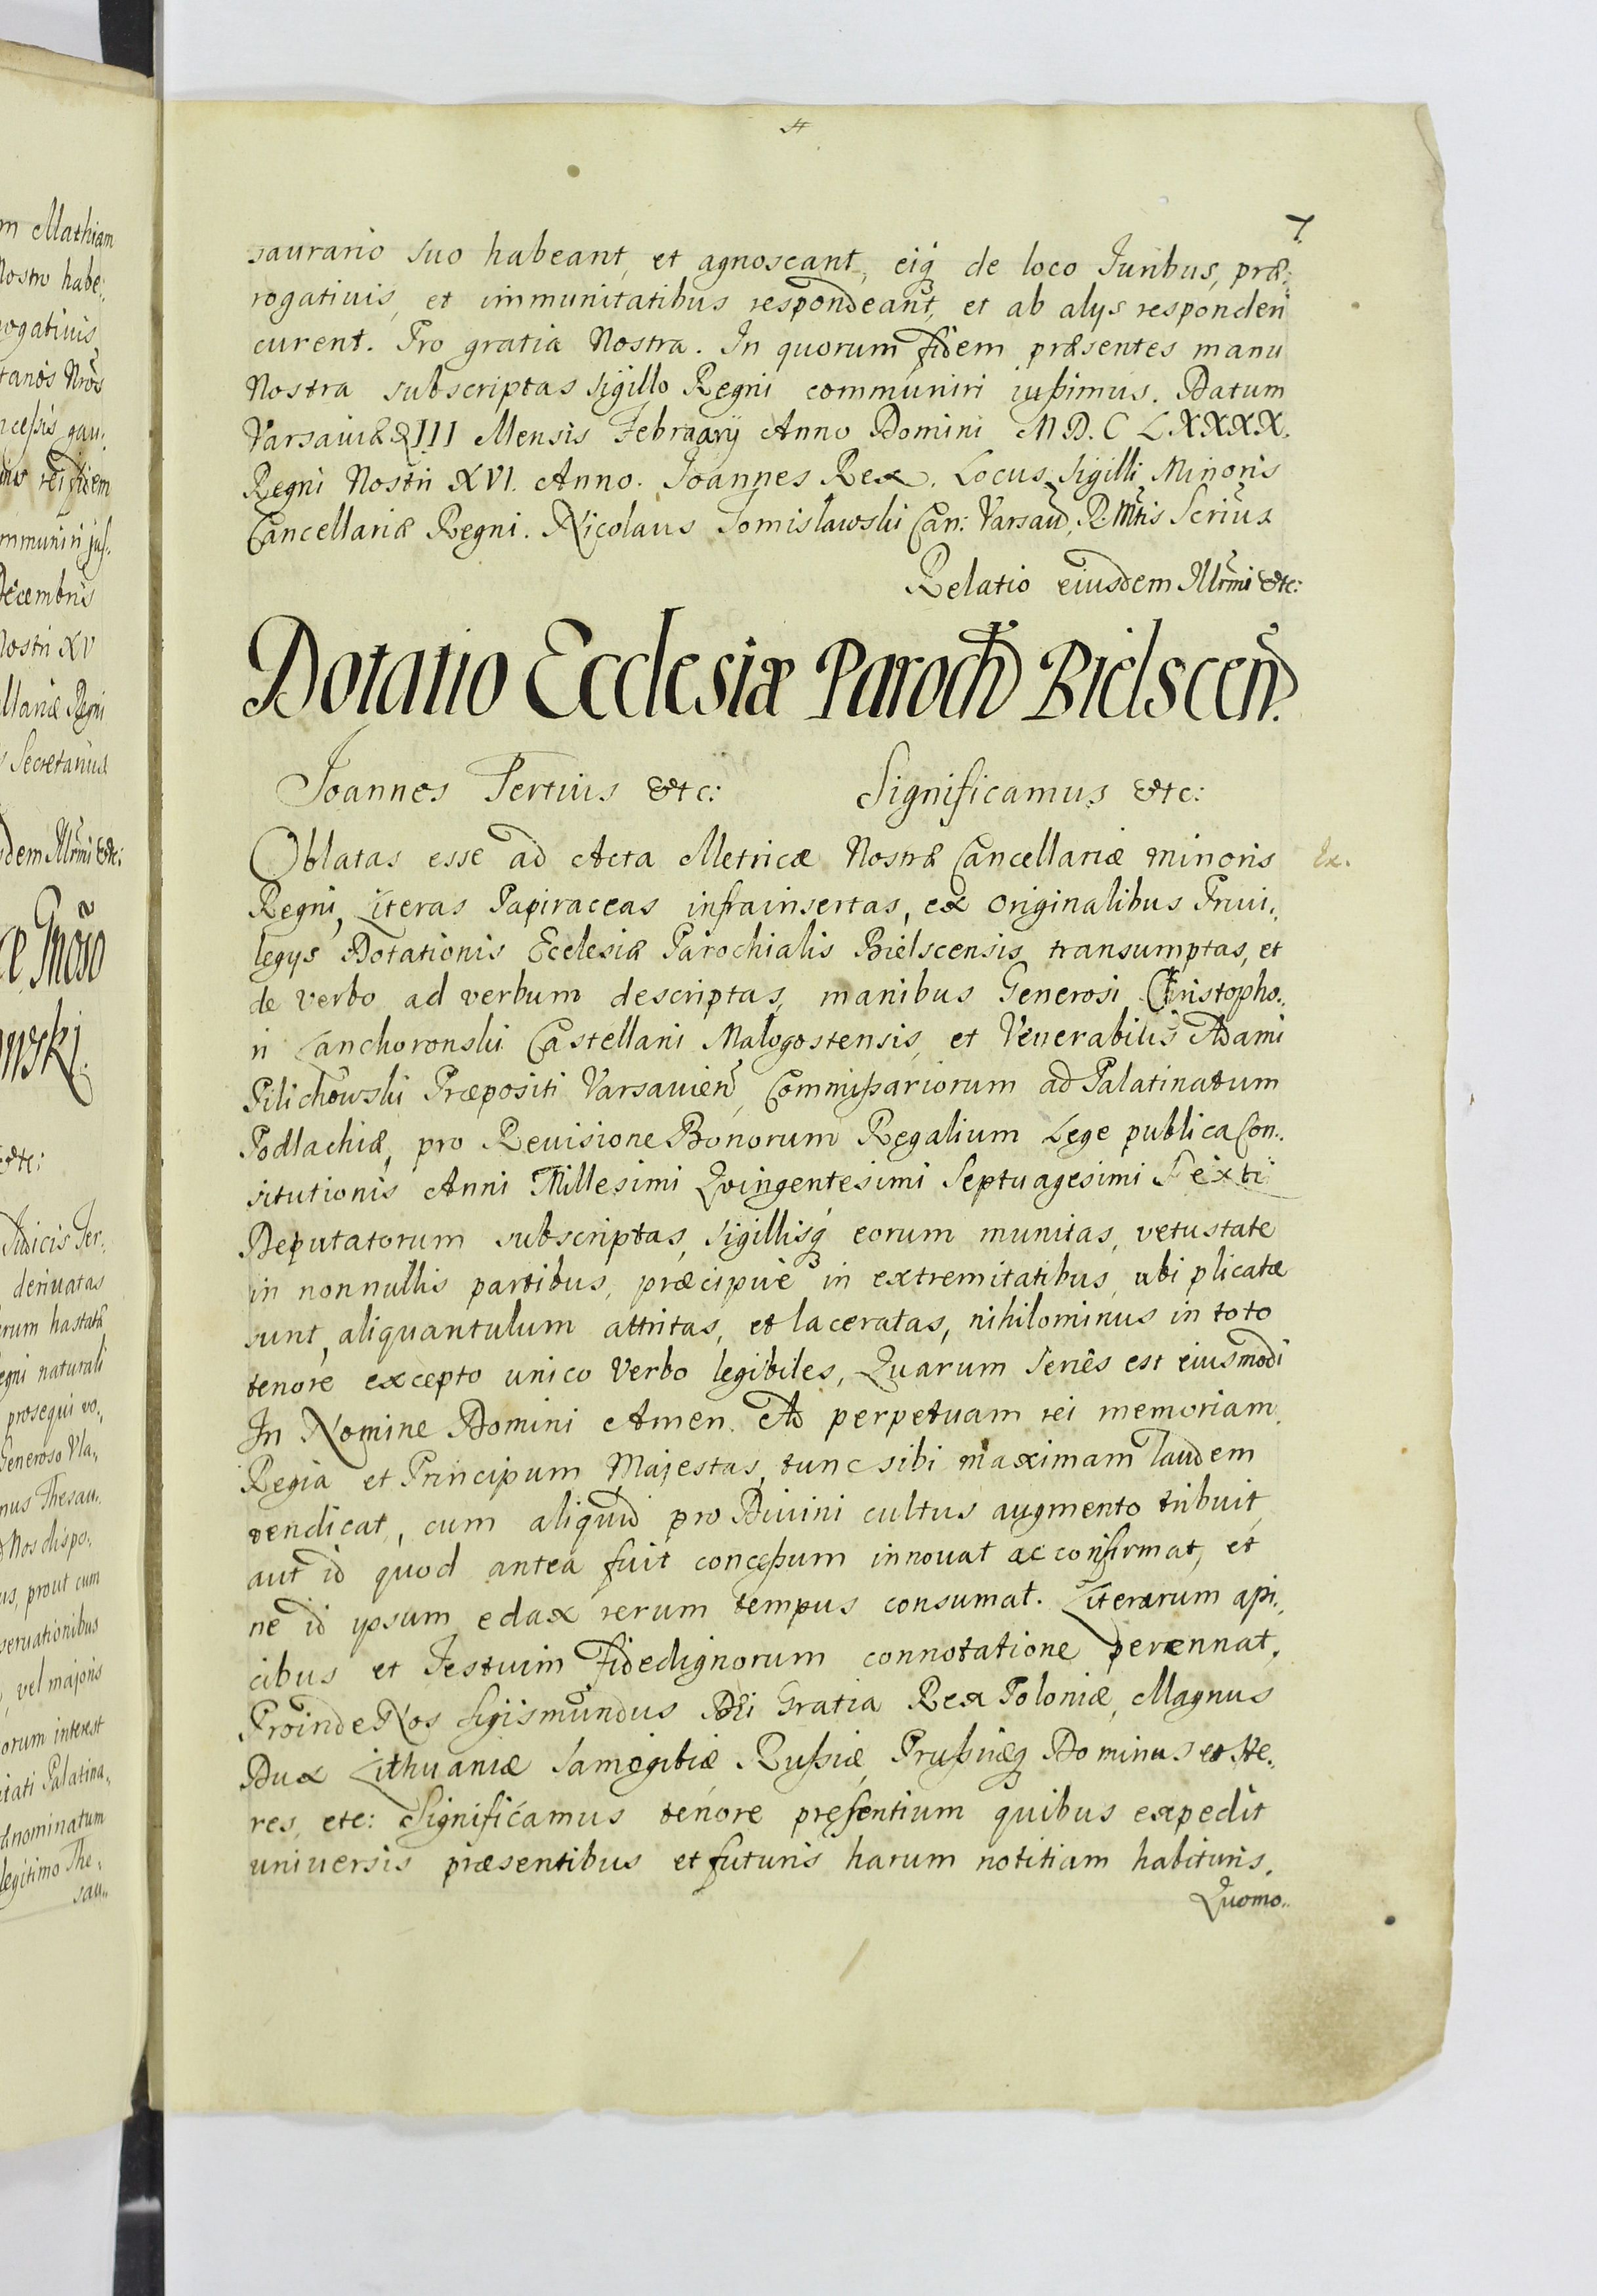 7
saurario suo habeant, et agnoscant, eiq; de loco Juribus, præ:
rogatiuis, et immunitatibus respondeant, et ab alys responderi
curent. Pro gratia Nostra. In quorum fidem præsentes manu
Nostra subscriptas sigillo Regni communiri iußimus. Datum
Varsauiæ XIII Mensis Februarÿ Anno Domini M D. C LXXXX.
Regni Nostri XVI. Anno. Joannes Rex. Locus Sigilli Minoris
Cancellariæ Regni. Nicolaus Tomislawski Can: Varsau, R. Mtis Scrius
Relatio eiusdem Illrmi etc:
Dotatio Ecclesiæ Paroch Bielscen.
Joannes Tertius etc: Significamus etc:
Oblatas esse ad Acta Metricæ Nostræ Cancellariæ minoris
Ex.
Regni, Literas Papiraceas infrainsertas, ex originalibus Priui:
legys Dotationis Ecclesiæ Parochialis Bielscensis transumptas, et
de verbo ad verbum descriptas, manibus Generosi Christopho:
ri Lanckoronski Castellani Malogostensis, et Venerabilis Adami
Pilichowski Præpositi Varsauien, Commißariorum ad Palatinatum
Podlachiæ, pro Reuisione Bonorum Regalium Lege publica Con:
situtionis Anni Millesimi Quingentesimi Septuagesimi Sexti
Deputatorum subscriptas, sigillisq; eorum munitas, vetustate
in nonnullis partibus, præcipuè in extremitatibus, ubi plicatæ
sunt, aliquantulum attritas, et laceratas, nihilominus in toto
tenore excepto unico verbo legibiles, Quarum series est eiusmodi
In Nomine Domini Amen. Ad perpetuam rei memoriam.
Regia et Principum Majestas, tunc sibi maximam laudem
vendicat, cum aliquid pro Diuini cultus augmento tribuit,
aut id quod antea fuit conceßum innouat ac confirmat, et
ne id ipsum edax rerum tempus consumat. Literarum api:
cibus et Testuim Fidedignorum connotatione perennat.
Proinde Nos Sigismundus Dei Gratia Rex Poloniæ, Magnus
Dux Lithuaniæ Samogitiæ Rußiæ, Prußiæq; Dominus et He:
res, etc: Significamus tenore presentium quibus expedit
universis præsentibus et futuris harum notitiam habituris.
Quomo: